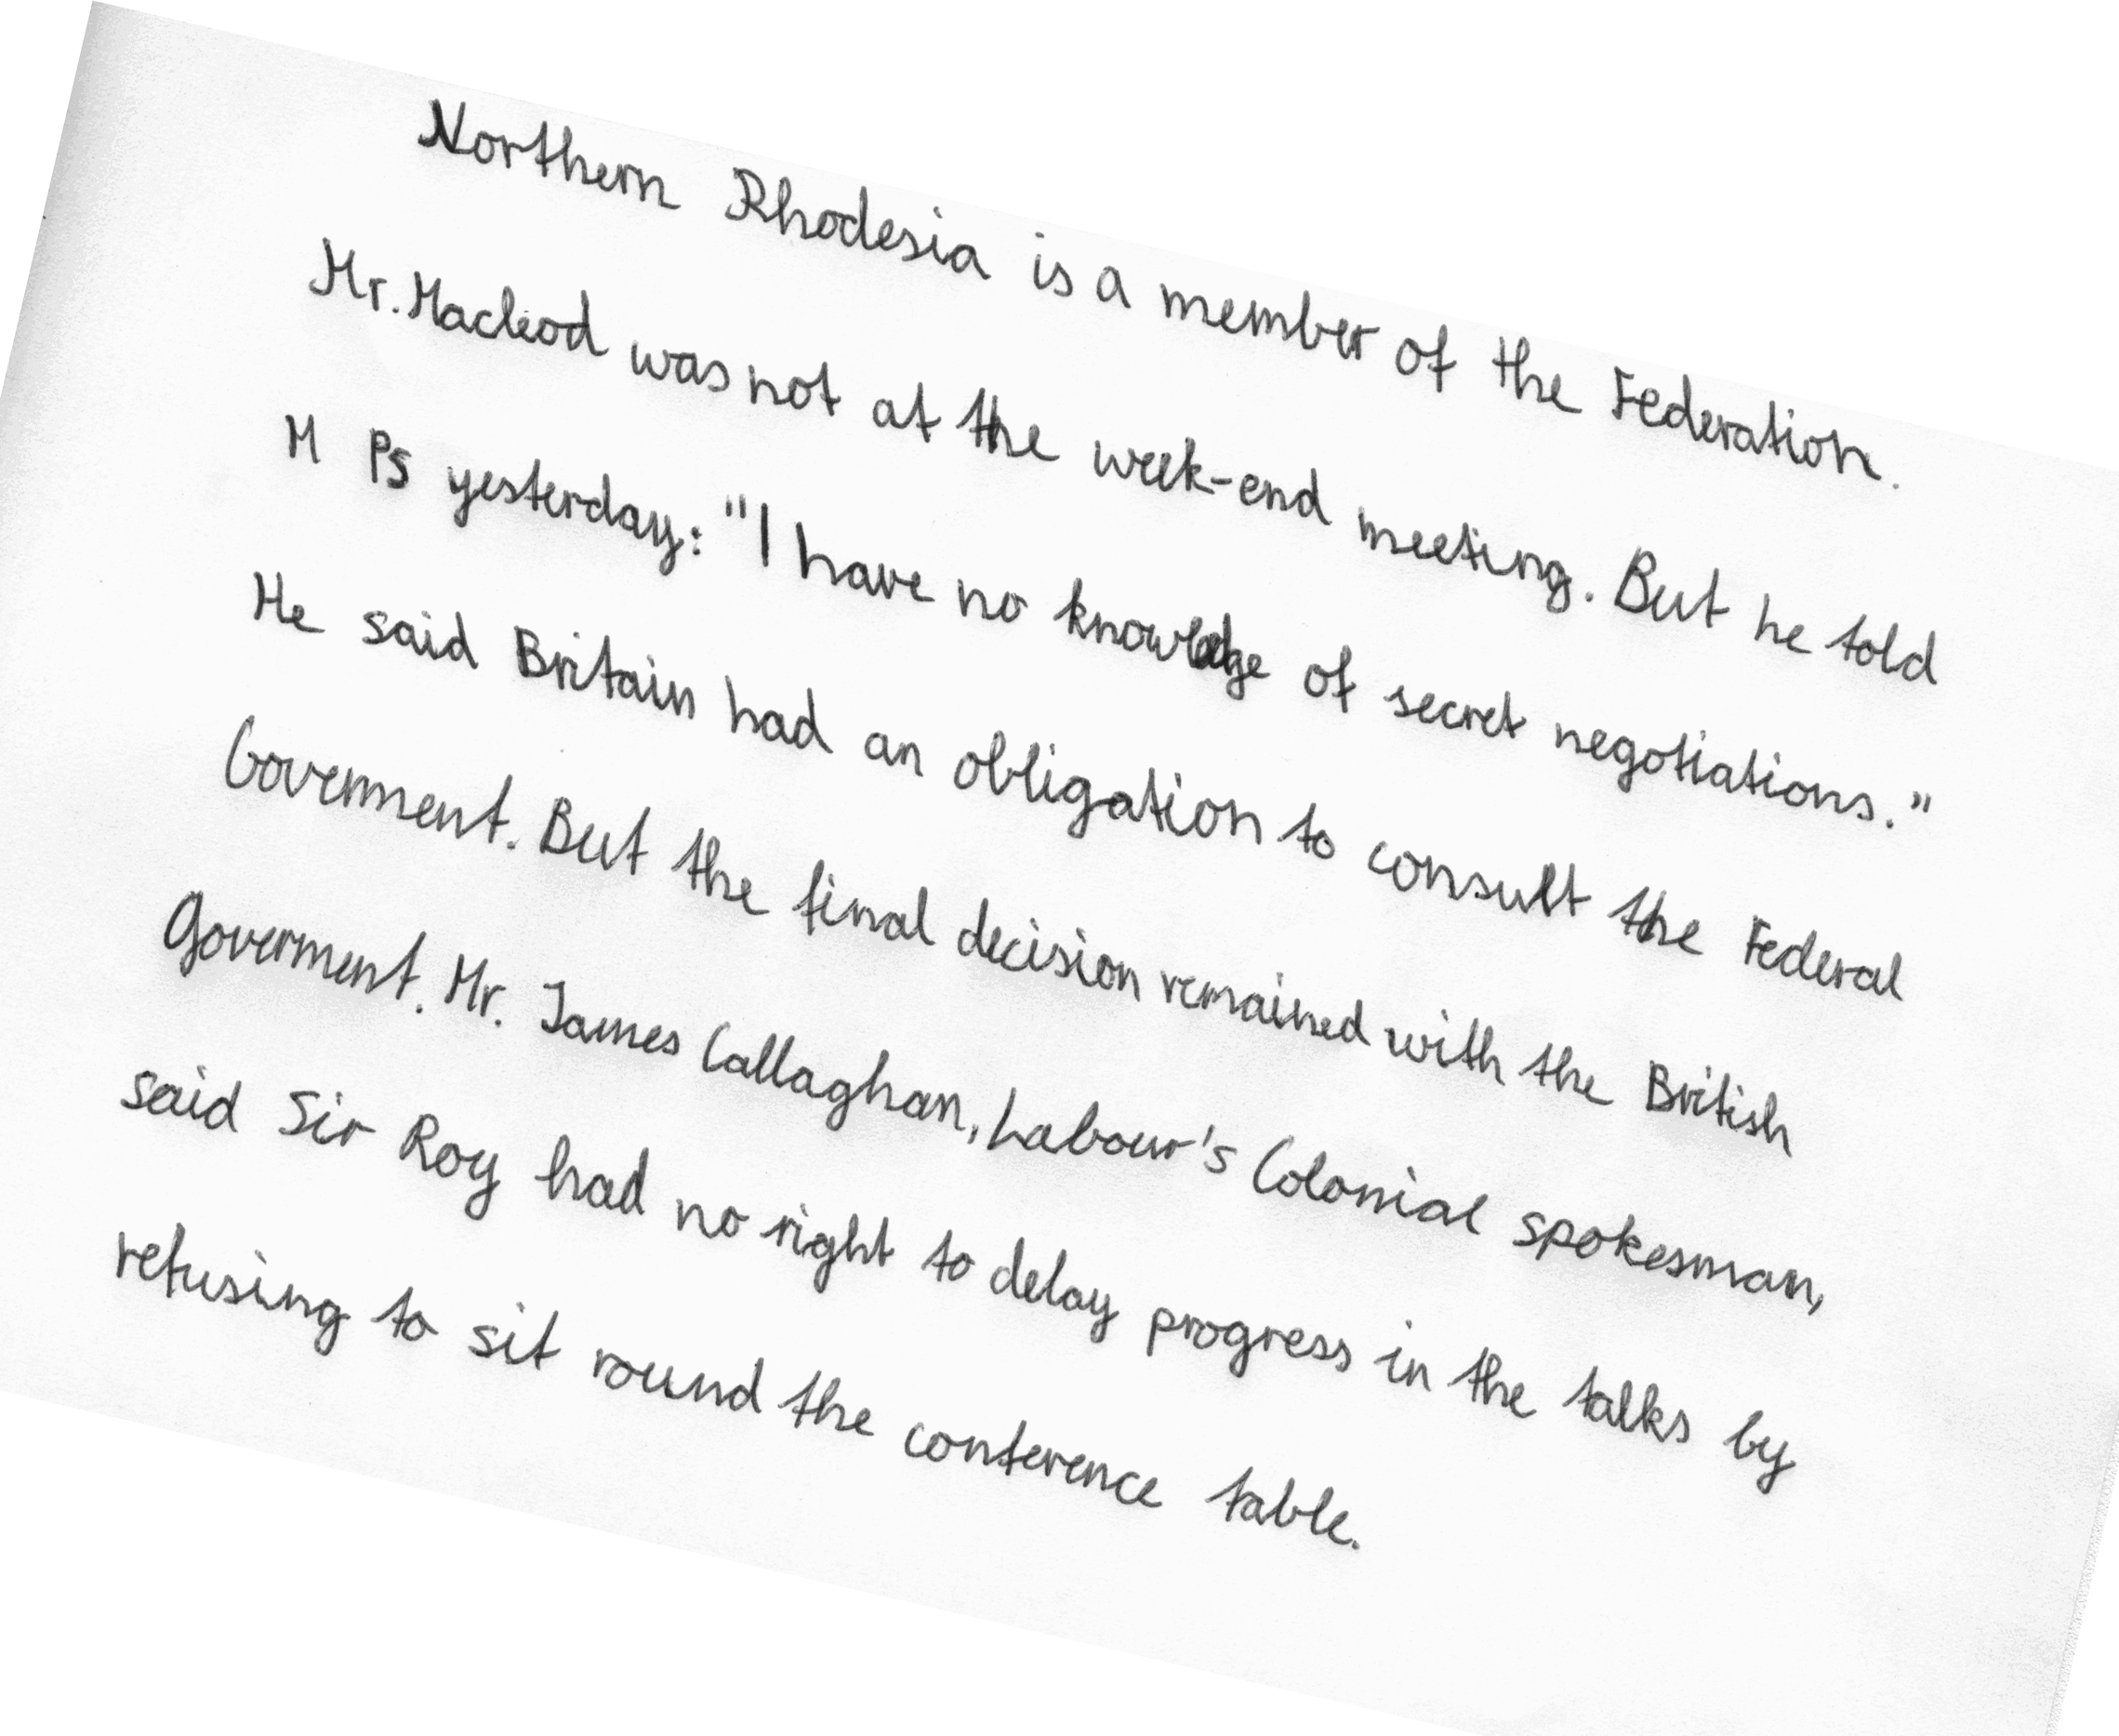 Northern Rhodesia is a member of the Federation.
Mr. Macleod was not at the week-end meeting. But he told
M Ps yesterday: "I have no knowledge of secret negotiations."
He said Britain had an obligation to consult the Federal
Government. But the final decision remained with the British
Government. Mr. James Callaghan, Labour's Colonial spokesman,
said Sir Roy had no right to delay progress in the talks by
refusing to sit round the conference table.